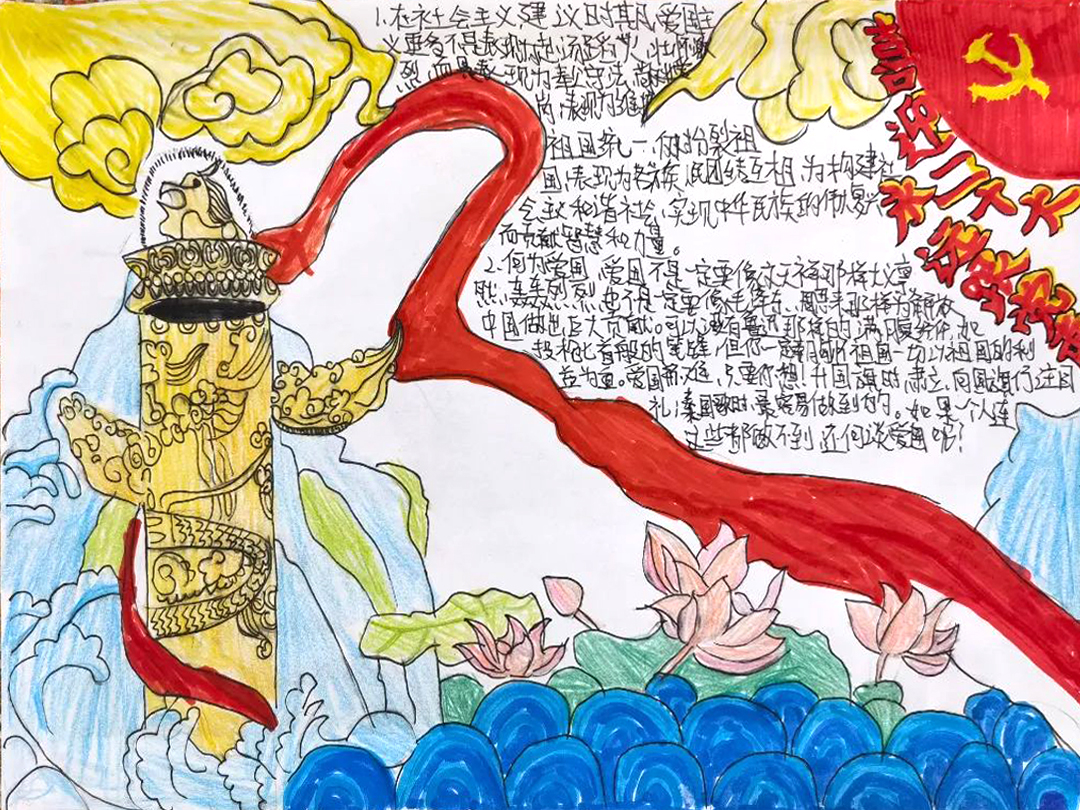 1.在社会主义建议时其凡爱国主
义更多不是表现为起流血牺牲,壮怀激
烈,而是表现为奉公守法
表现为维护
祖国统一,何怡分裂祖
国,表现为各族人民团结互相,为构建社
会主义和谐社会,实现中华民族的伟大复兴
而贡献智慧和力量。
2.何为爱国,爱国不是一定要像文天祥那样大义凛
然,轰轰烈烈,也不是一定要像毛泽东,周恩来那样为解放
中国做出巨大贡献。可以没有鲁迅那样的满腹经纶,如
投枪匕首般的笔锋,但你一定要明晰祖国一切以祖国的利
益为重。爱国不难,只要你想!升国旗时肃立,向国旗行注目
礼,奏国歌时,最容易做到的。如果一个人连
这些都做不到,还何谈爱国呢?
喜迎
二十大
跟党走